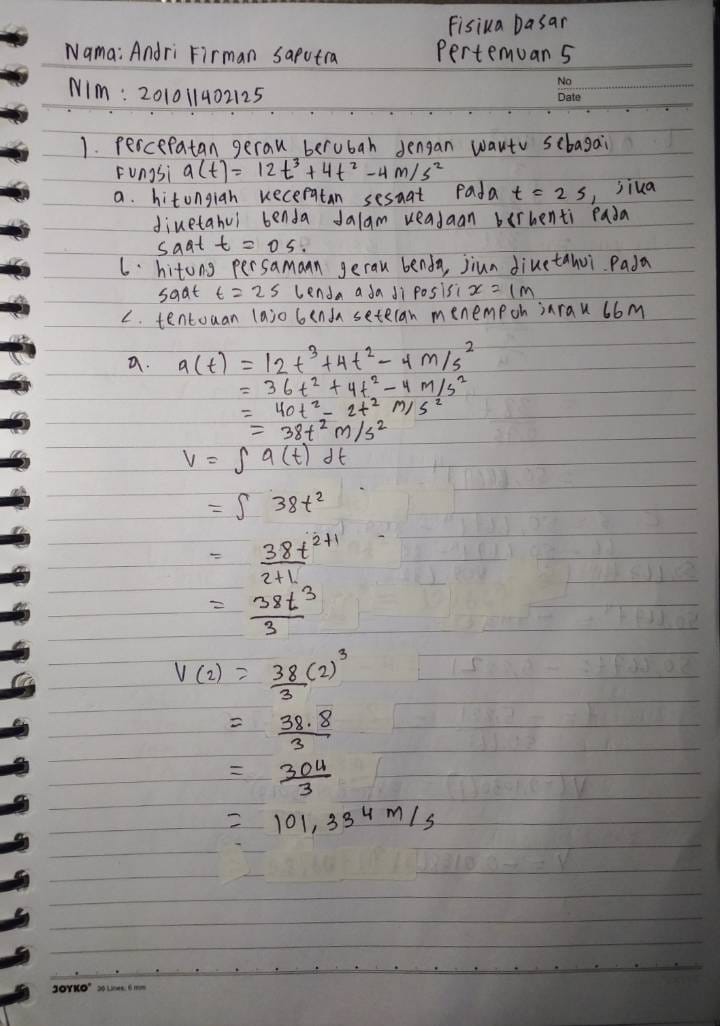 Fisika Dasar
Nama: Andri Firman Saputra Pertemuan 5
NIM : 201011402125
No
Date
1. Percepatan gerak berubah dengan waktu sebagai
Fungsi a(t) = 12t³ + 4t² - 4 m/s²
a. hitunglah kecepatan sesaat pada t = 2 s, jika
diketahui benda dalam keadaan berhenti pada
saat t = 0 s.
b. hitung persamaan gerak benda, jika diketahui pada
saat t = 2s benda ada di posisi x = 1m
c. tentukan laju benda setelah menempuh jarak 66 m
a. a(t) = 12t³ + 4t² - 4 m/s²
= 36t² + 4t² - 4 m/s²
= 40t² - 2t² m/s²
= 38t² m/s²
V = ∫ a(t) dt
= ∫ 38t²
= 38t²⁺¹ / 2+1
= 38t³ / 3
V(2) = 38(2)³ / 3
= 38.8 / 3
= 304 / 3
= 101,334 m/s
JOYKO 20 Lines, 6 mm